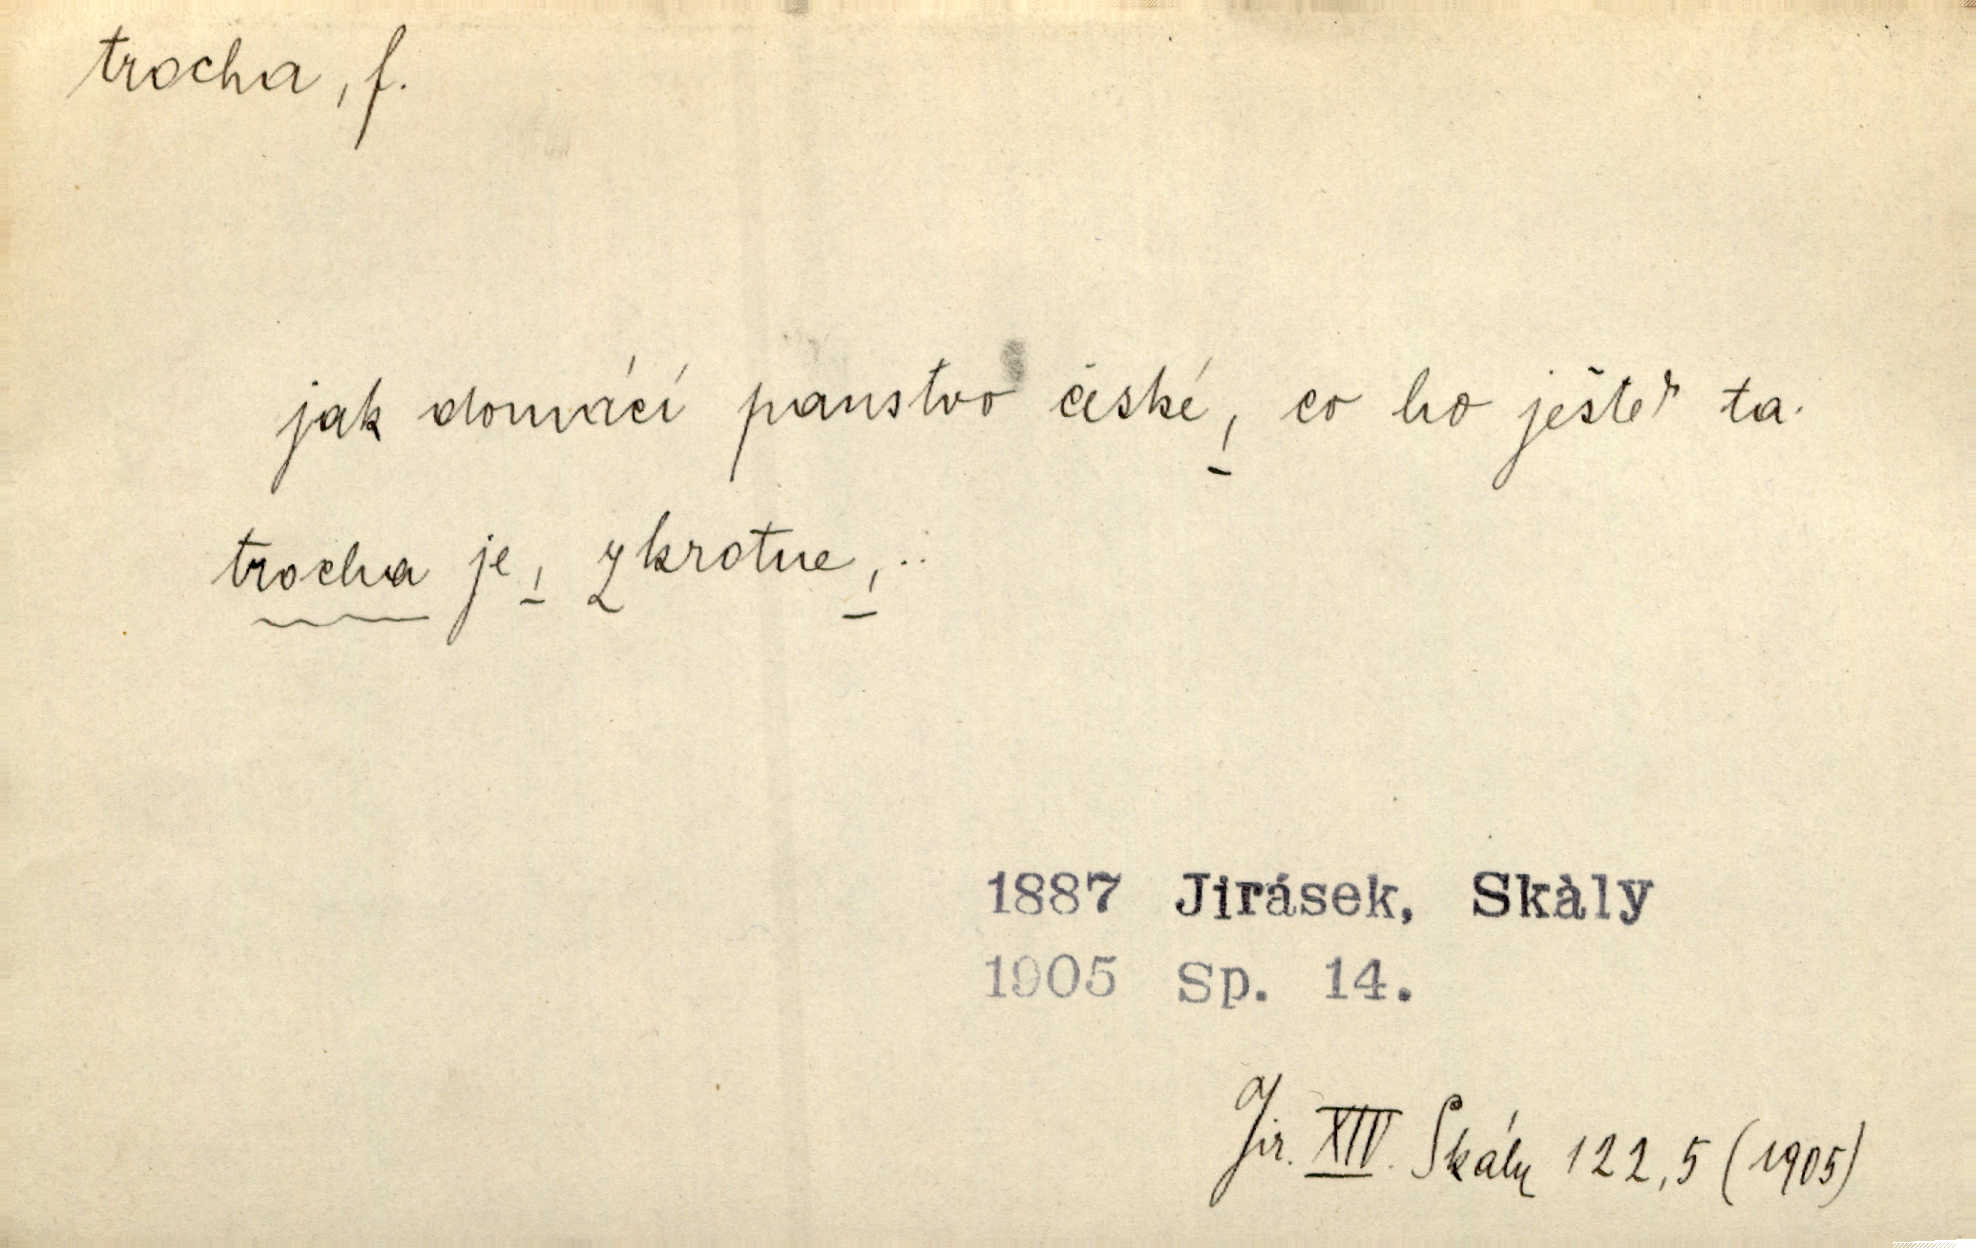 trocha, f.
jak domácí panstvo české, co ho ještě ta
trocha je, zkrotne, ..
1887 Jirásek, Skàly
1905 Sp. 14.
Jir. XIV. Skály 122,5 (1905)